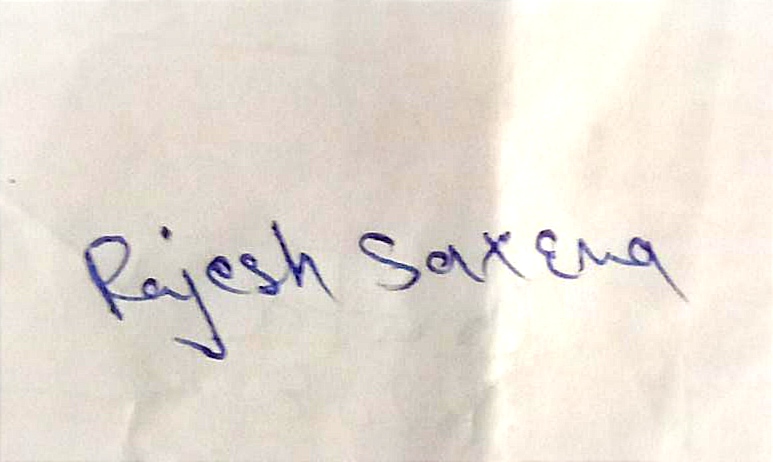 Rajesh Saxena